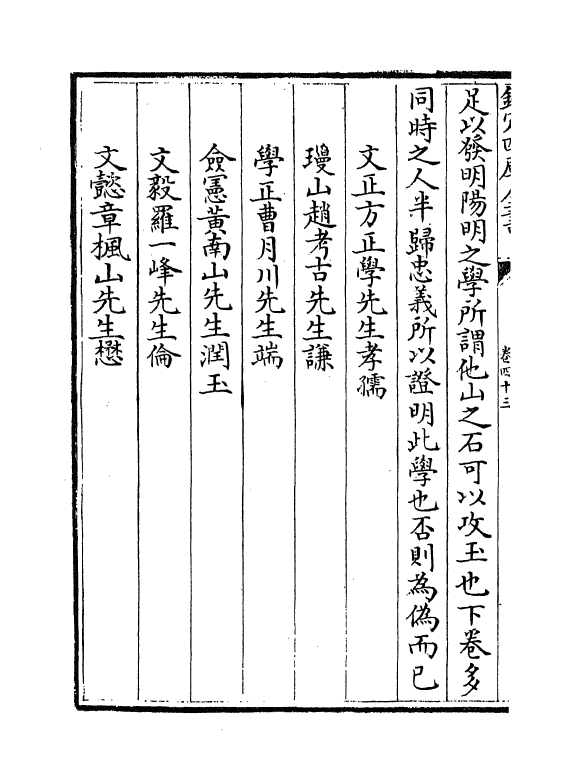 欽定四庫全書
卷四十三
足以發明陽明之學所謂他山之石可以攻玉也下卷多
同時之人半歸忠義所以證明此學也否則為偽而已
文正方正學先生孝孺
瓊山趙考古先生謙
學正曹月川先生端
僉憲黃南山先生潤玉
文毅羅一峰先生倫
文懿章楓山先生懋